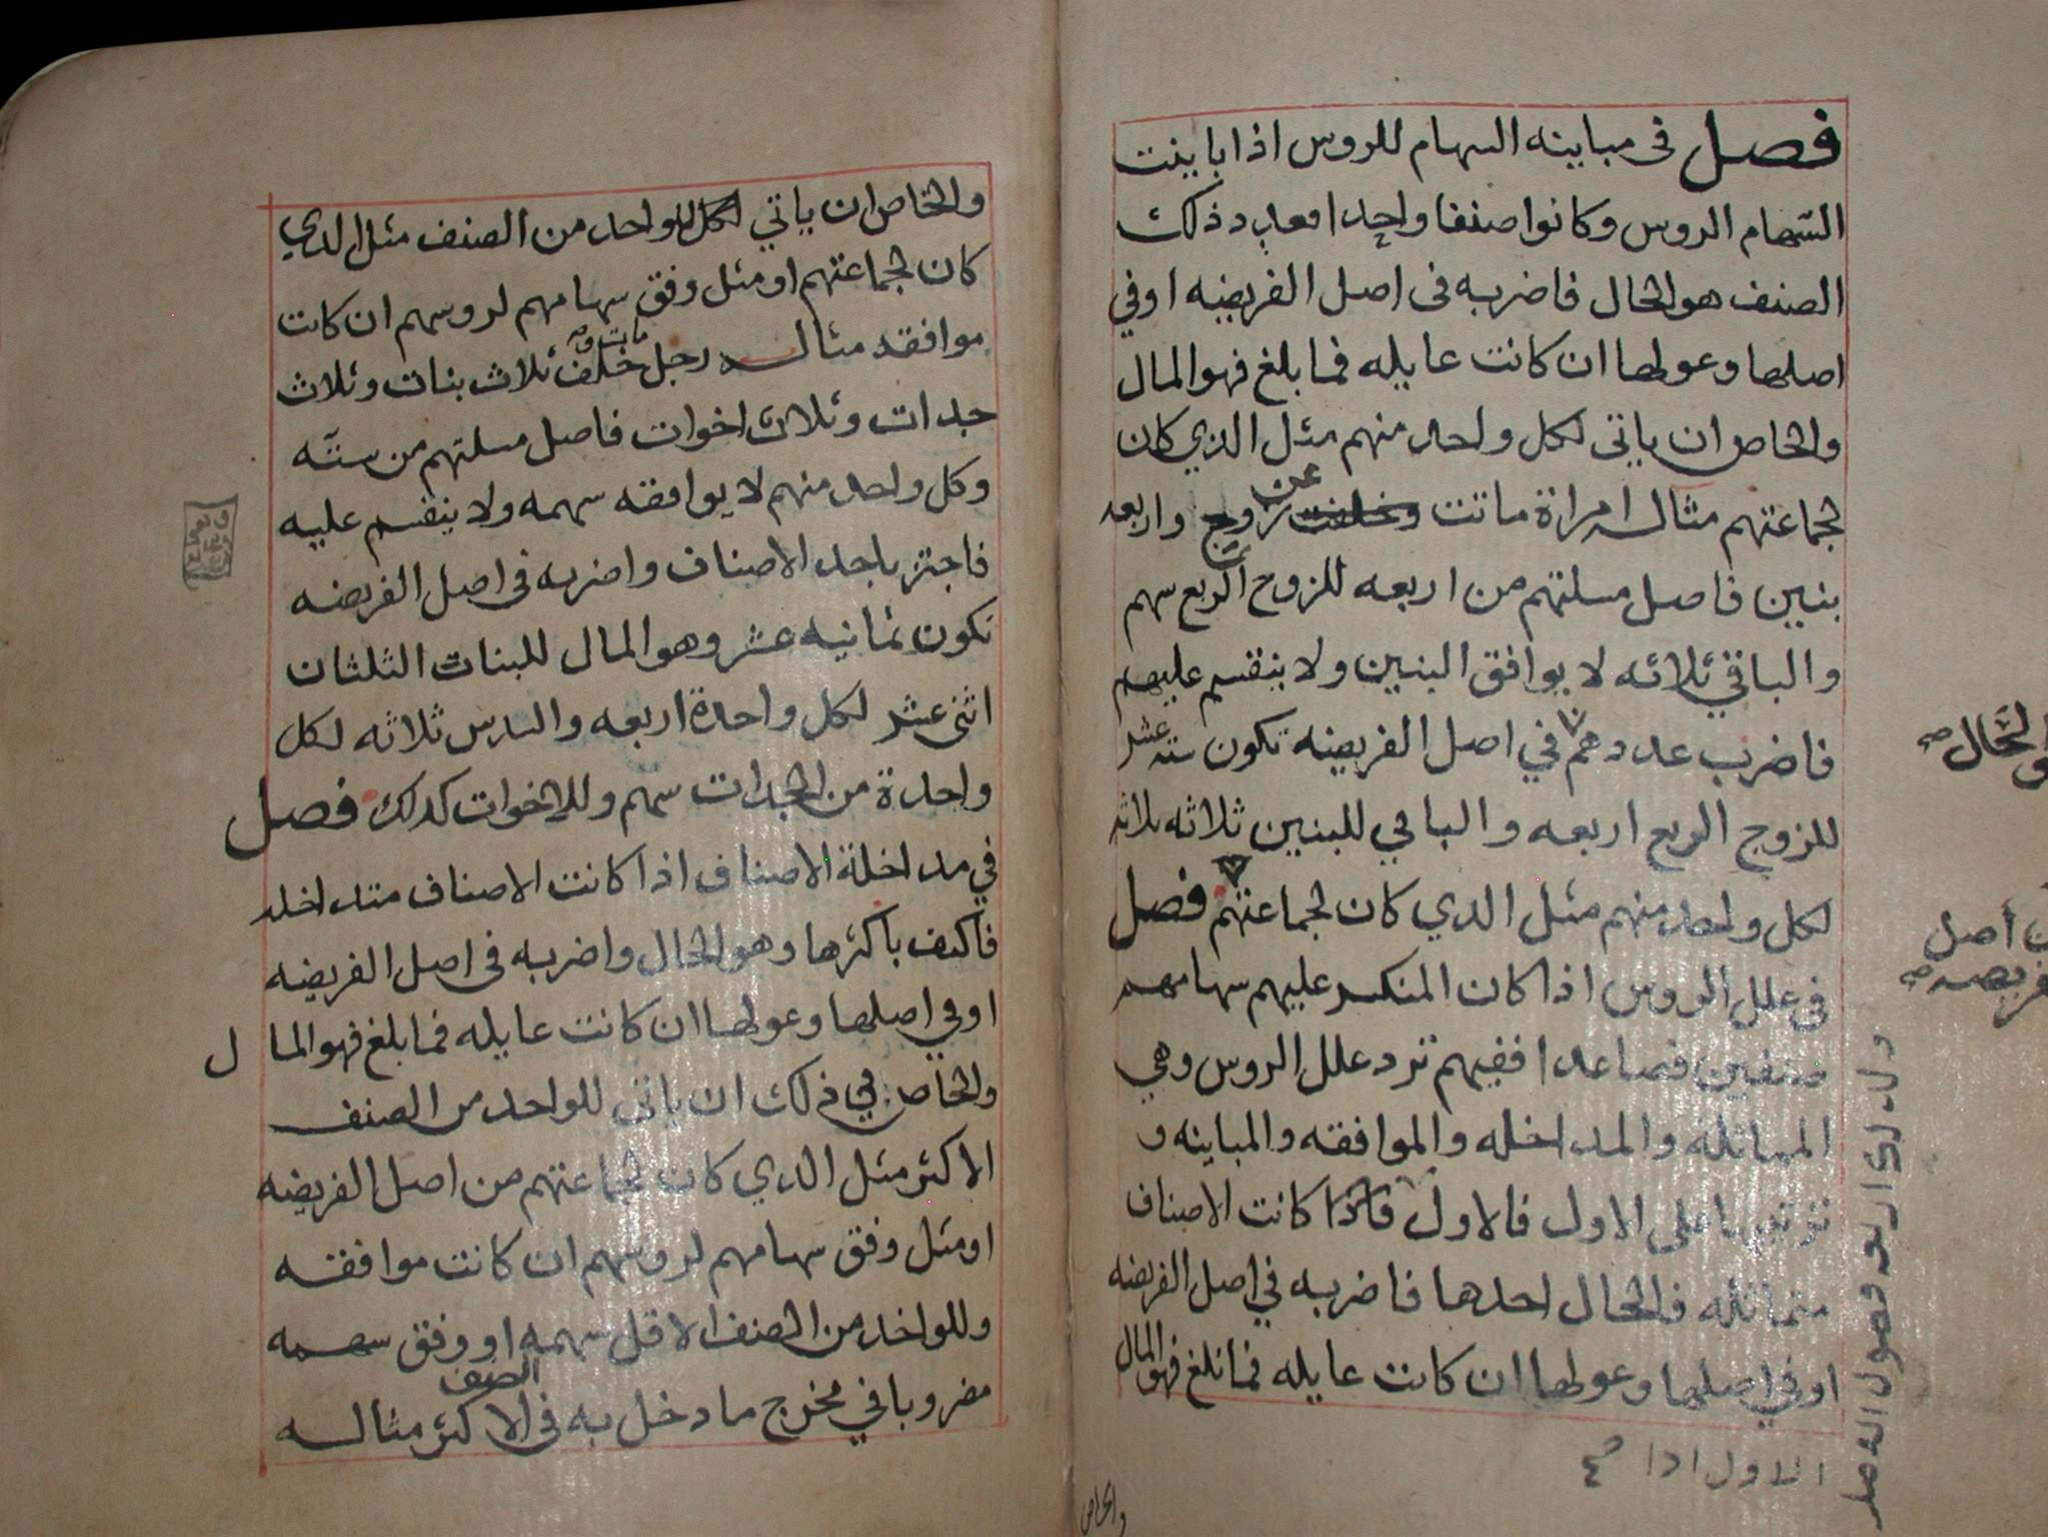 فصل في مباينه السهام للروس اذا باينت
السهام الروس وكانوا صنفا واحدا فعدد ذلك
الصنف هو الحال فاضربه في اصل الفريضه او في
اصلها وعولها ان كانت عايله فما بلغ فهو المال
والخاص ان ياتي لكل واحد منهم مثل الذي كان
لجماعتهم مثاله امراة ماتت وخلفت عن زوج واربعه
بنين فاصل مسلتهم من اربعه للزوج الربع سهم
والباقي ثلاثه لا يوافق البنين ولا ينقسم عليهم
فاضرب عددهم في اصل الفريضه تكون سته عشر
للزوج الربع اربعه والباقي للبنين ثلاثه ثلاثه
لكل واحد منهم مثل الدي كان لجماعتهم فصل
في علل الروس اذا كان المنكسر عليهم سهامهم
صنفين فصاعدا ففيهم ترد علل الروس وهي
المماثله والمداخله والموافقه والمباينه و
ترتيبها على الاول فالاول فاذا كانت الاصناف
متماثله فالحال احدها فاضربه في اصل الفريضه
او في اصلها وعولها ان كانت عايله فما بلغ فهو المال
والحال صح
اصل
الاول اذا
والخاص
والخاص ان ياتي لكل للواحد من الصنف مثل الدي
كان لجماعتهم او مثل وفق سهامهم لروسهم ان كانت
موافقه مثاله رجل خلف ثلاث بنات وثلاث
جدات وثلاث اخوات فاصل مسلتهم من سته
وكل واحد منهم لا يوافقه سهمه ولا ينقسم عليه
فاجتز باحد الاصناف واضربه في اصل الفريضه
تكون ثمانيه عشر وهو المال للبنات الثلثان
اثنى عشر لكل واحدة اربعه والسدس ثلاثه لكل
واحدة من الجدات سهم وللاخوات كدلك فصل
في مداخلة الاصناف اذا كانت الاصناف متداخله
فاكتف باكثرها وهو الحال واضربه في اصل الفريضه
او في اصلها وعولها ان كانت عايله فما بلغ فهو المال
والخاص في ذلك ان ياتي للواحد من الصنف
الاكثر مثل الدي كان لجماعتهم من اصل الفريضه
او مثل وفق سهامهم لروسهم ان كانت موافقه
وللواحد من الصنف الاقل سهمه او وفق سهمه
مضروبا في مخرج ما دخل به في الصنف الاكثر مثاله